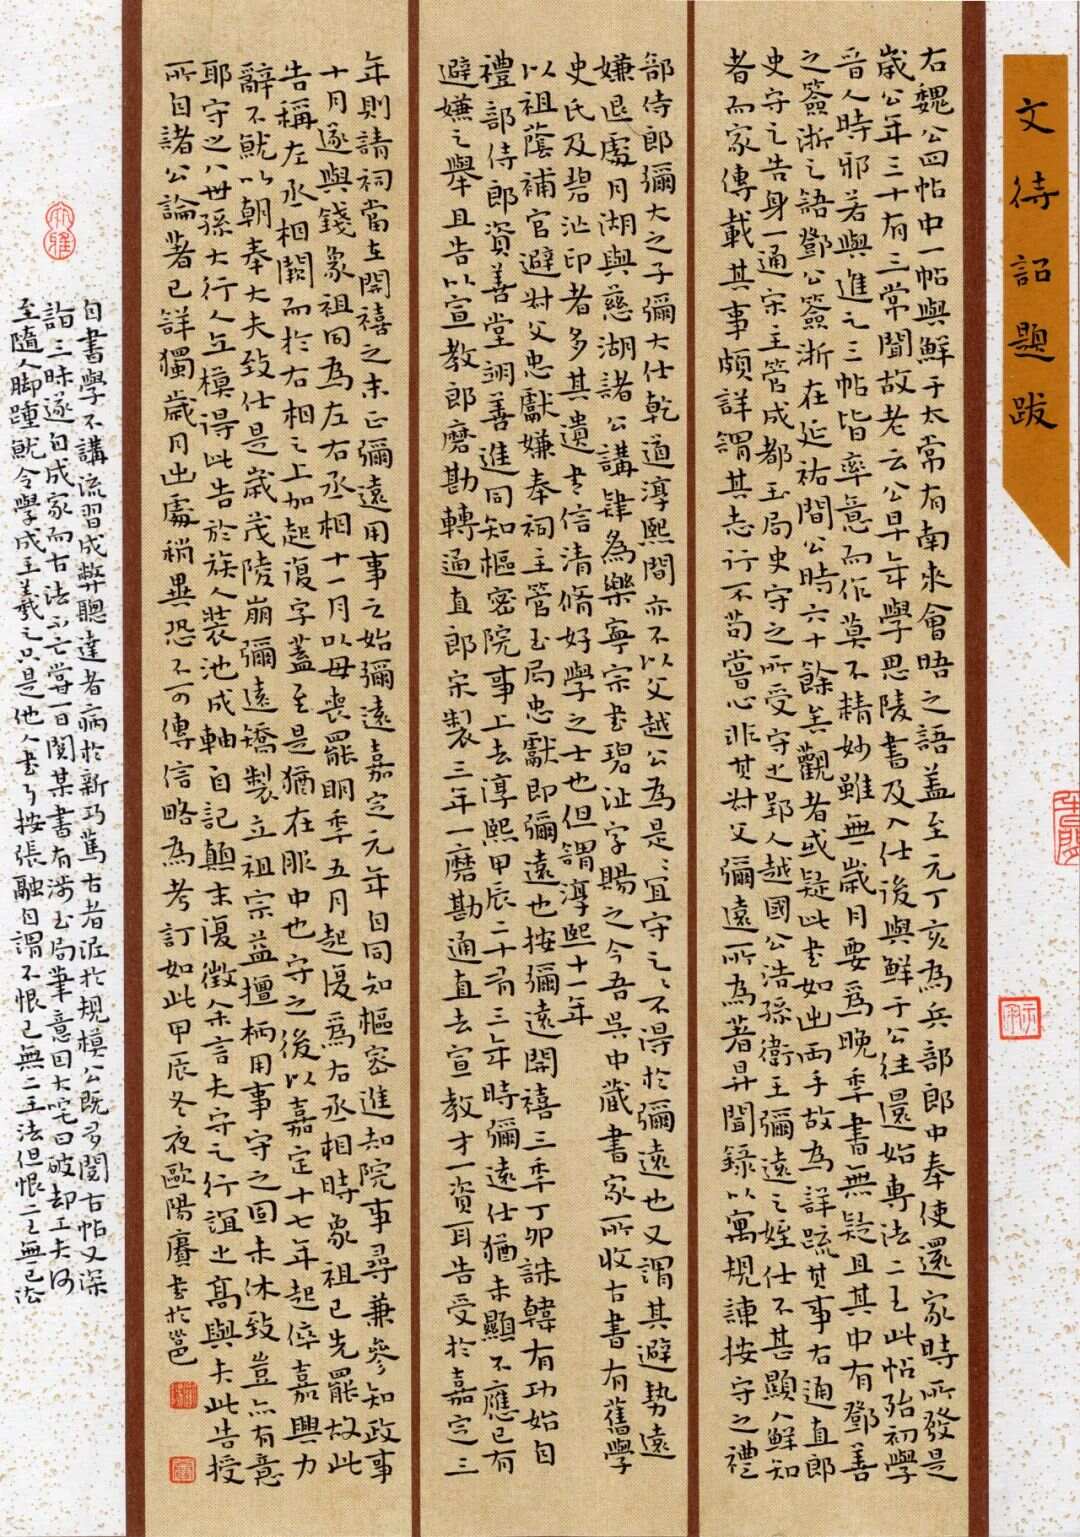 文待詔題跋
右魏公四帖中一帖與鮮于太常有南來會晤之語蓋至元丁亥為兵部郎中奉使還家時所發是
歲公年三十有三常聞故老云公早年學思陵書及入仕後與鮮于公往還始專法二王此帖殆初學
晉人時邪若與進之三帖皆率意而作莫不精妙雖無歲月要為晚季書無疑且其中有鄧善
之簽浙之語鄧公簽浙在延祐間公時六十餘矣觀者或疑此書如出兩手故為詳疏其事右通直郎
史守之告身一通宋主管成都玉局史守之所受守之鄞人越國公浩孫衛王彌遠之姪仕不甚顯人鮮知
者而家傳載其事頗詳謂其志行不苟嘗心非其叔父彌遠所為著昇聞錄以寓規諫按守之禮
部侍郎彌大之子彌大仕乾道淳熙間亦不以父越公為是宜守之不得於彌遠也又謂其避勢遠
嫌退處月湖與慈湖諸公講肄為樂寧宗書碧沚字賜之今吾吳中藏書家所收古書有舊學
史氏及碧沚印者多其遺書信清脩好學之士也但謂淳熙十一年
以祖蔭補官避叔父忠獻嫌奉祠主管玉局忠獻即彌遠也按彌遠開禧三季丁卯誅韓有功始自
禮部侍郎資善堂翊善進同知樞密院事上去淳熙甲辰二十有三年時彌遠仕猶未顯不應已有
避嫌之舉且告以宣教郎磨勘轉通直郎宋製三年一磨勘通直去宣教才一資耳告受於嘉定三
年則請祠當在開禧之末正彌遠用事之始彌遠嘉定元年自同知樞密進知院事尋兼參知政事
十月遂與錢象祖同為左右丞相十一月以母喪罷明季五月起復爲右丞相時象祖已先罷故此
告稱左丞相闕而於右相之上加起復字蓋至是猶在服中也守之後以嘉定十七年起倅嘉興力
辭不就以朝奉大夫致仕是歲茂陵崩彌遠矯製立祖宗益擅柄用事守之固未休致豈亦有意
耶守之八世孫大行人立模得此告於族人裝池成軸自記顛末復徵余言夫守之行誼之高與夫此告授
所自諸公論著已詳獨歲月出處稍異恐不可傳信略為考訂如此甲辰冬夜歐陽賡書於邕
自書學不講流習成弊聰達者病於新巧篤古者泥於規模公既多閱古帖又深
詣三昧遂自成家而古法不亡嘗一日閱某書有涉玉局筆意因大咤曰破却工夫何
至隨人脚踵就令學成王羲之只是他人書耳按張融自謂不恨己無二王法但恨二王無己法